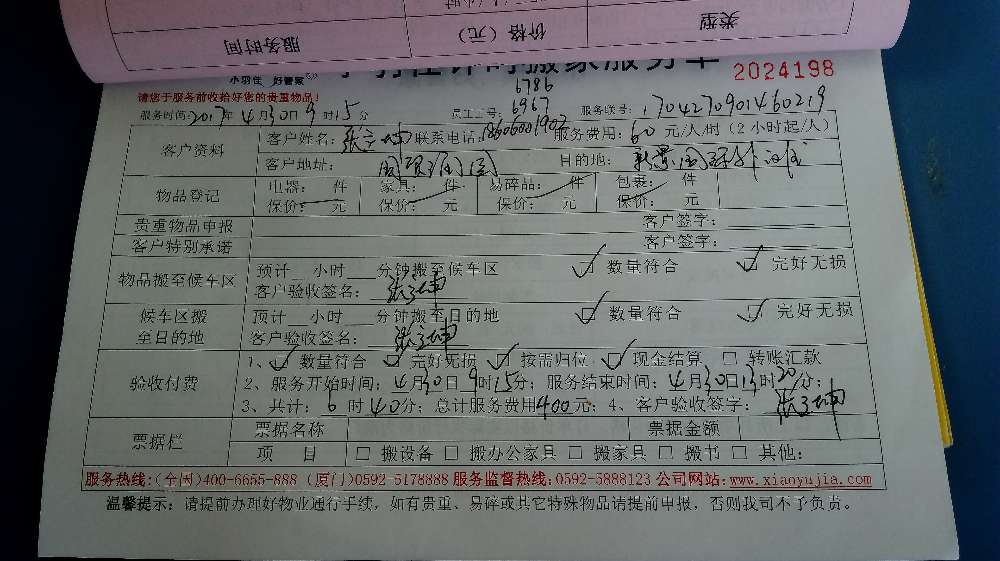 服务时间 价格（元） 类型
小羽佳 好管家
小羽佳计时搬家服务单
2024198
请您于服务前收给好您的贵重物品！
6786
服务时间：2017年4月30日9时15分 员工工号：6967 服务联号：1704270901460219
客户资料 客户姓名： 联系电话：18606001902 服务费用：60元/人/时（2小时起/人）
客户地址： 目的地：
物品登记 电器： 件 家具： 件 易碎品： 件 包裹： 件
保价： 元 保价： 元 保价： 元 保价： 元
贵重物品申报 客户签字：
客户特别承诺 客户签字：
物品搬至候车区 预计__小时__分钟搬至候车区 数量符合 完好无损
客户验收签名：
候车区搬至目的地 预计__小时__分钟搬至目的地 数量符合 完好无损
客户验收签名：
验收付费 1、数量符合 完好无损 按需归位 现金结算 □ 转账汇款
2、服务开始时间：4月30日9时15分；服务结束时间：4月30日13时20分；
3、共计：6时40分；总计服务费用400元；4、客户验收签字：
票据栏 票据名称 票据金额
项 目 □ 搬设备 □ 搬办公家具 □ 搬家具 □ 搬书 □ 其他：
服务热线：（全国）400-6655-888（厦门）0592-5178888 服务监督热线：0592-5888123 公司网站：www.xiaoyujia.com
温馨提示：请提前办理好物业通行手续，如有贵重、易碎或其它特殊物品请提前申报，否则我司不予负责。